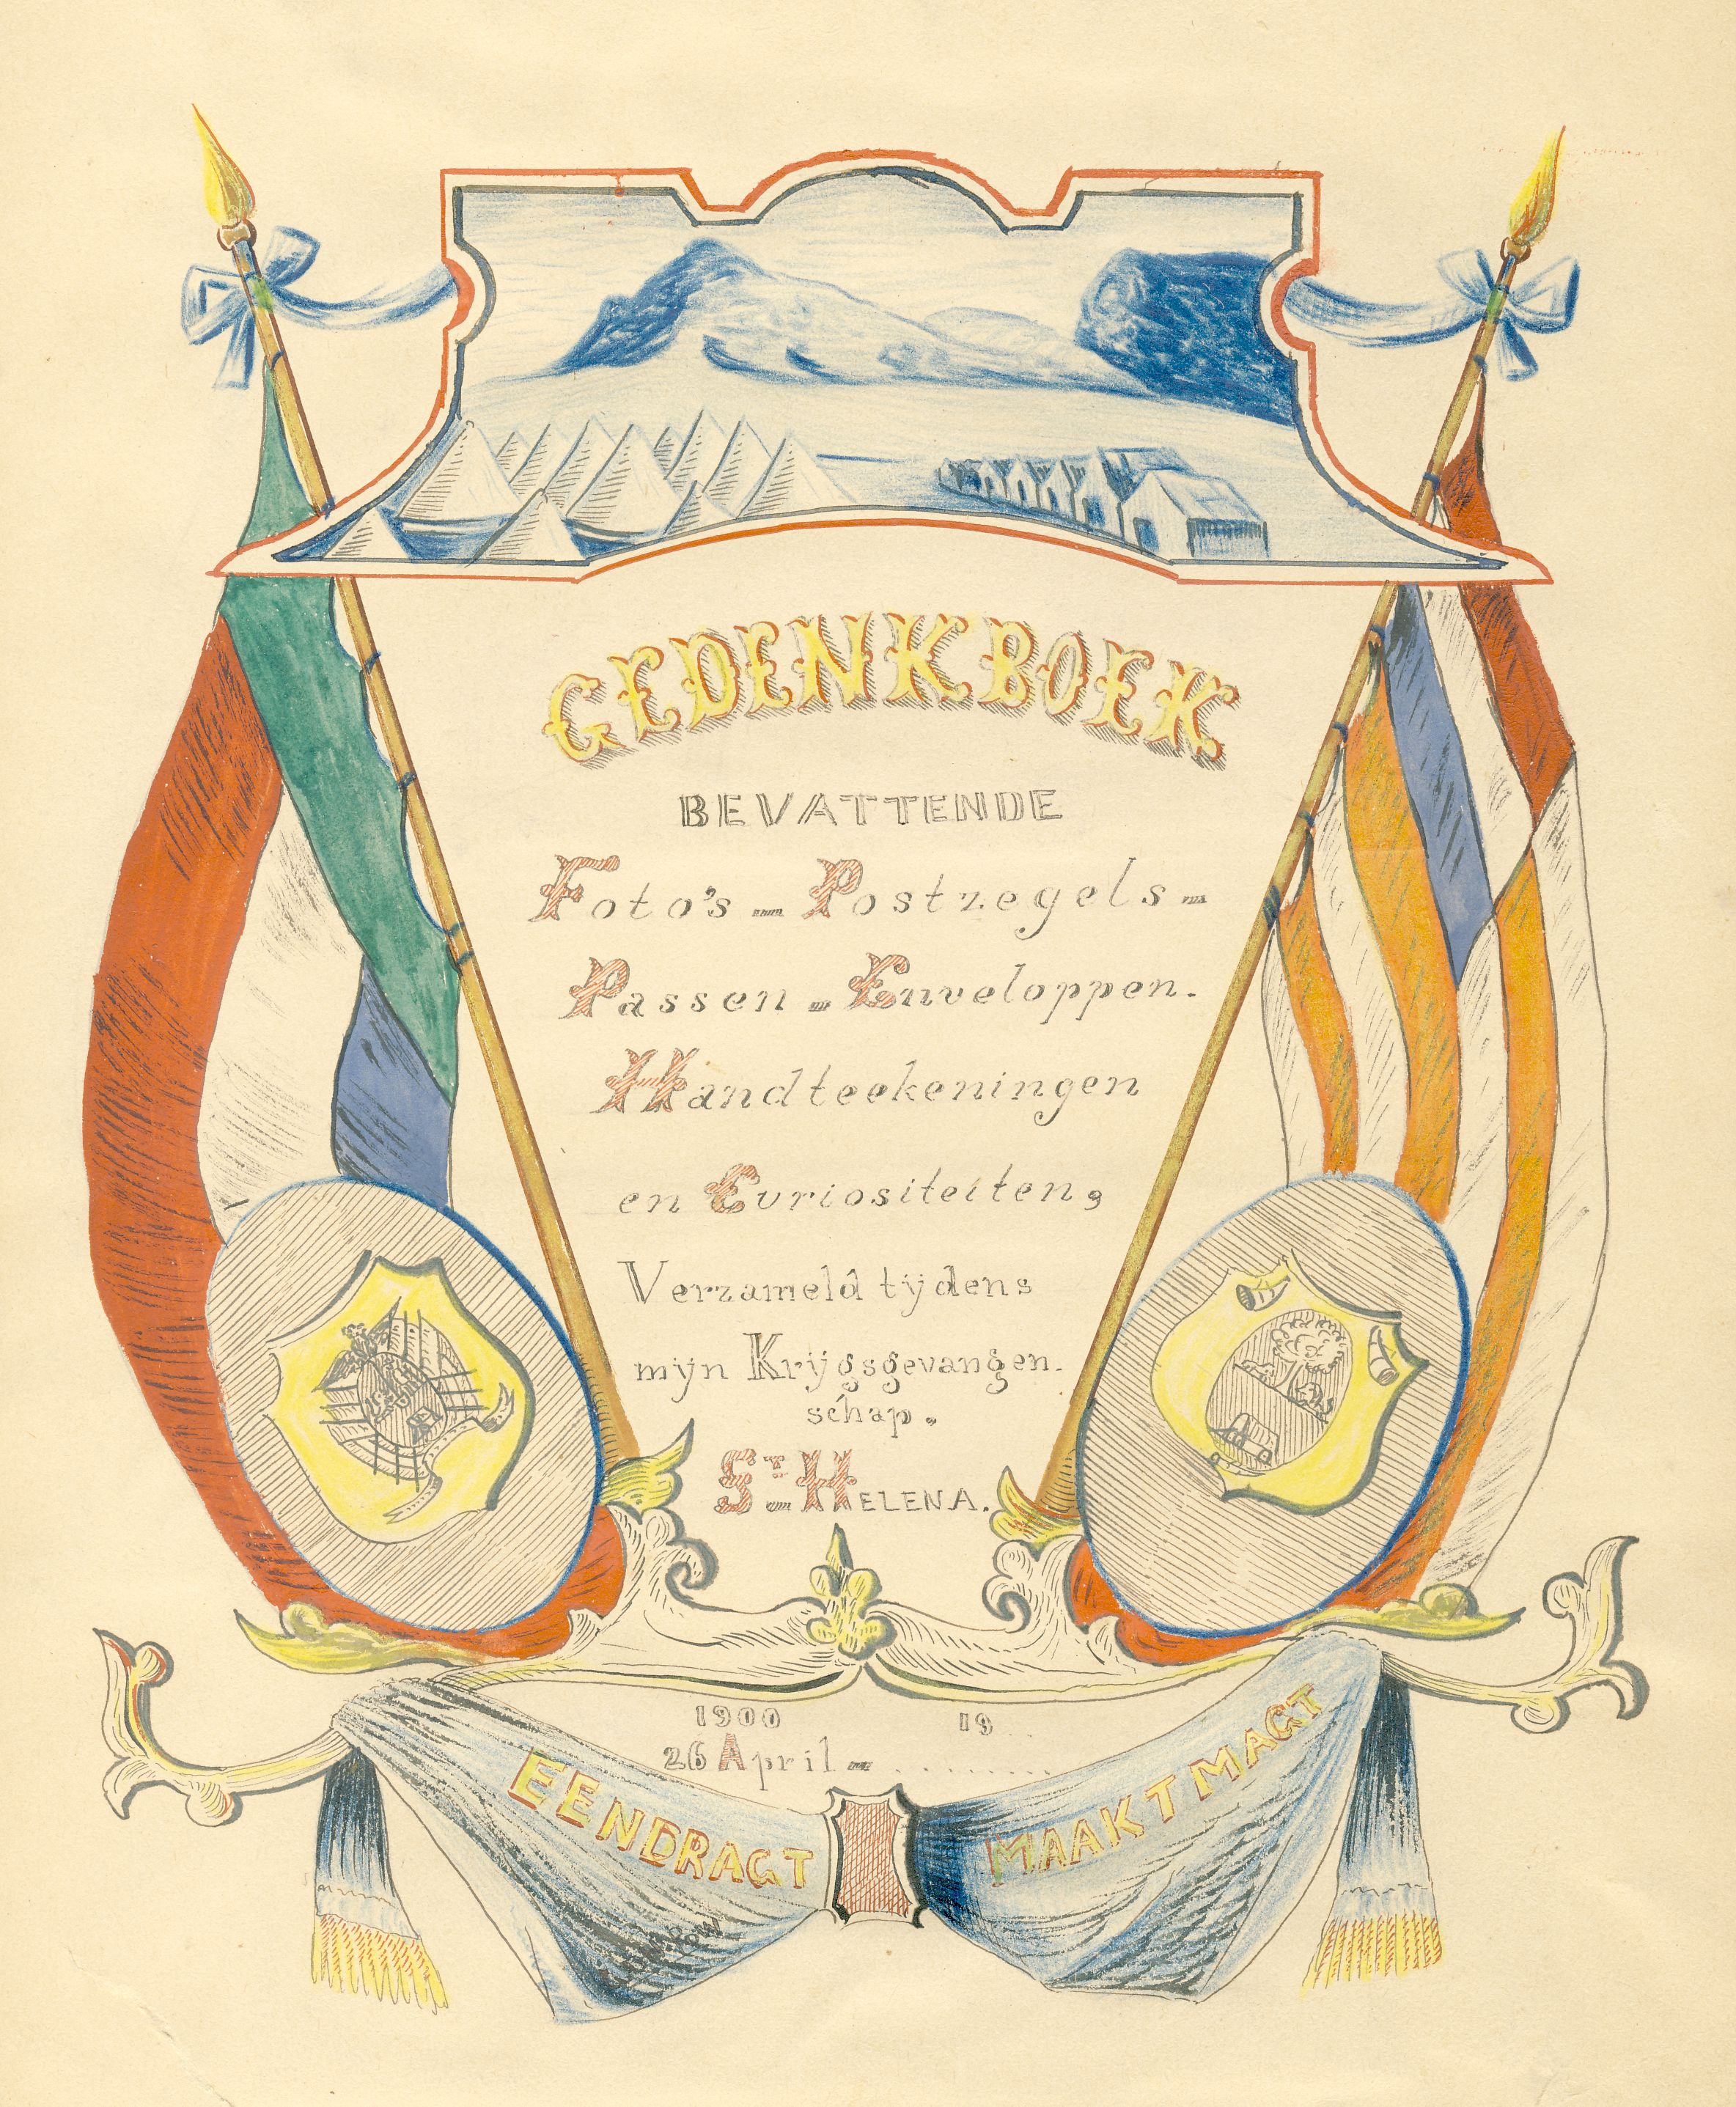 GEDENKBOEK
BEVATTENDE
Foto's – Postzegels –
Passen – Enveloppen.
Handteekeningen
en Curiositeiten,
Verzameld tijdens
mijn Krijgsgevangen-
schap.
ST. HELENA.
1900 19
26 April – . . . . . . . . .
EENDRAGT MAAKT MAGT